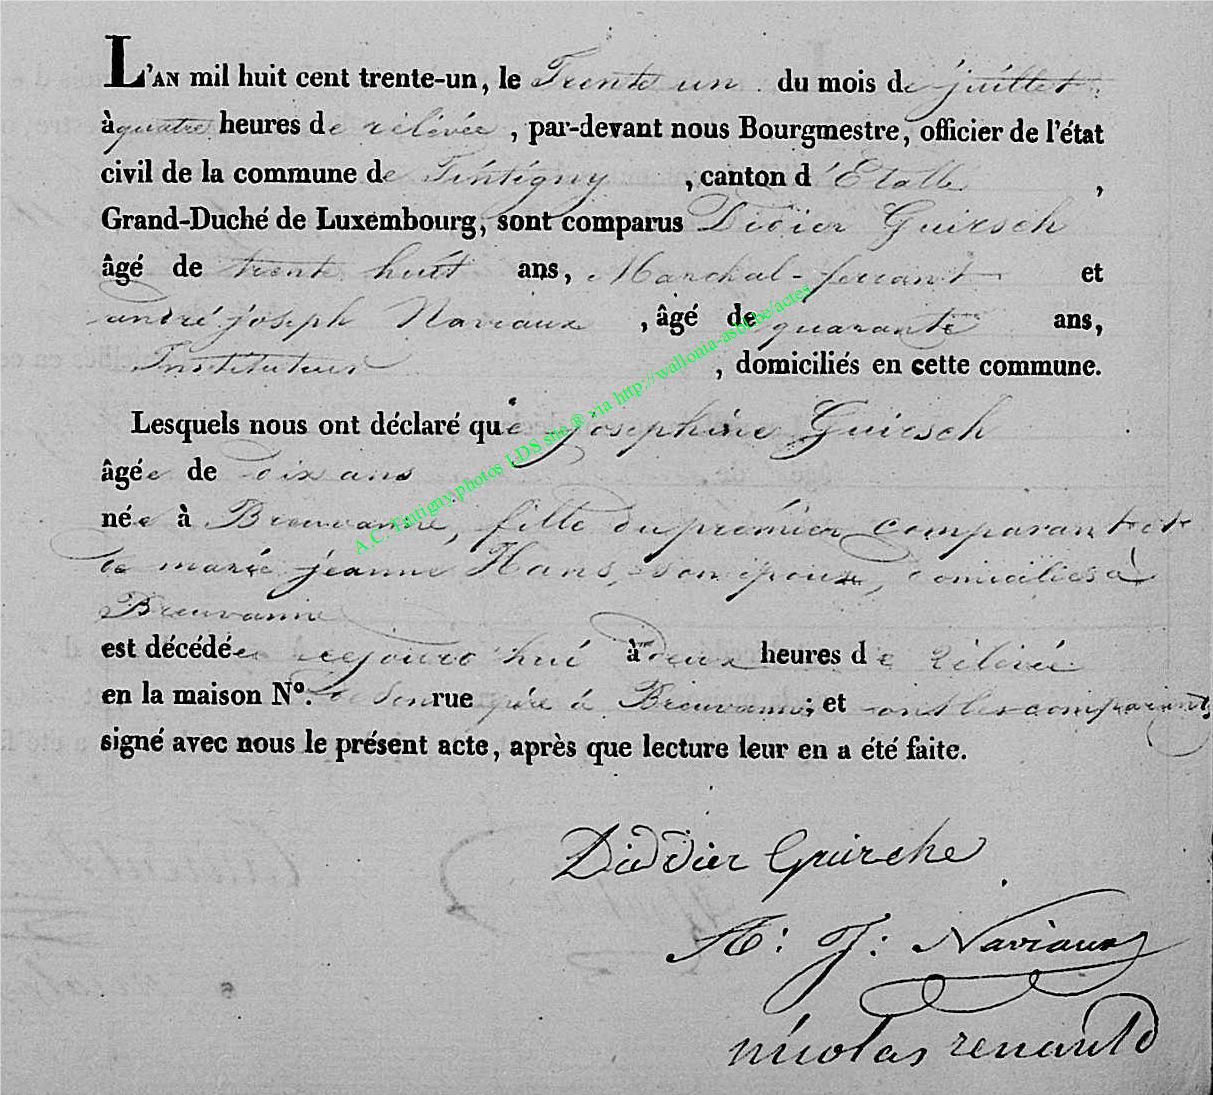 L'AN mil huit cent trente-un, le Trente un du mois de juillet
à quatre heures de relevée, par-devant nous Bourgmestre, officier de l'état
civil de la commune de Tintigny, canton d'Etalle,
Grand-Duché de Luxembourg, sont comparus Didier Guirsch
âgé de trente huit ans, Marchal-ferrant et
andré joseph Naviaux, âgé de quarante ans,
Instituteur, domiciliés en cette commune.
Lesquels nous ont déclaré que josephine Guirsch
âgée de dix ans
née à Breuvanne, fille du premier comparant et
de marie jeanne Hans, son épouse, domiciliés à
Breuvanne
est décédée cejourd'hui à deux heures de relevée
en la maison N°. de son rue père à Breuvanne; et ont les comparants
signé avec nous le présent acte, après que lecture leur en a été faite.
Diddier Guirche
A: J: Naviaux
nicolas renauld
A.C. Tintigny photos LDS site ® via http://wallonia-asbl.be/actes